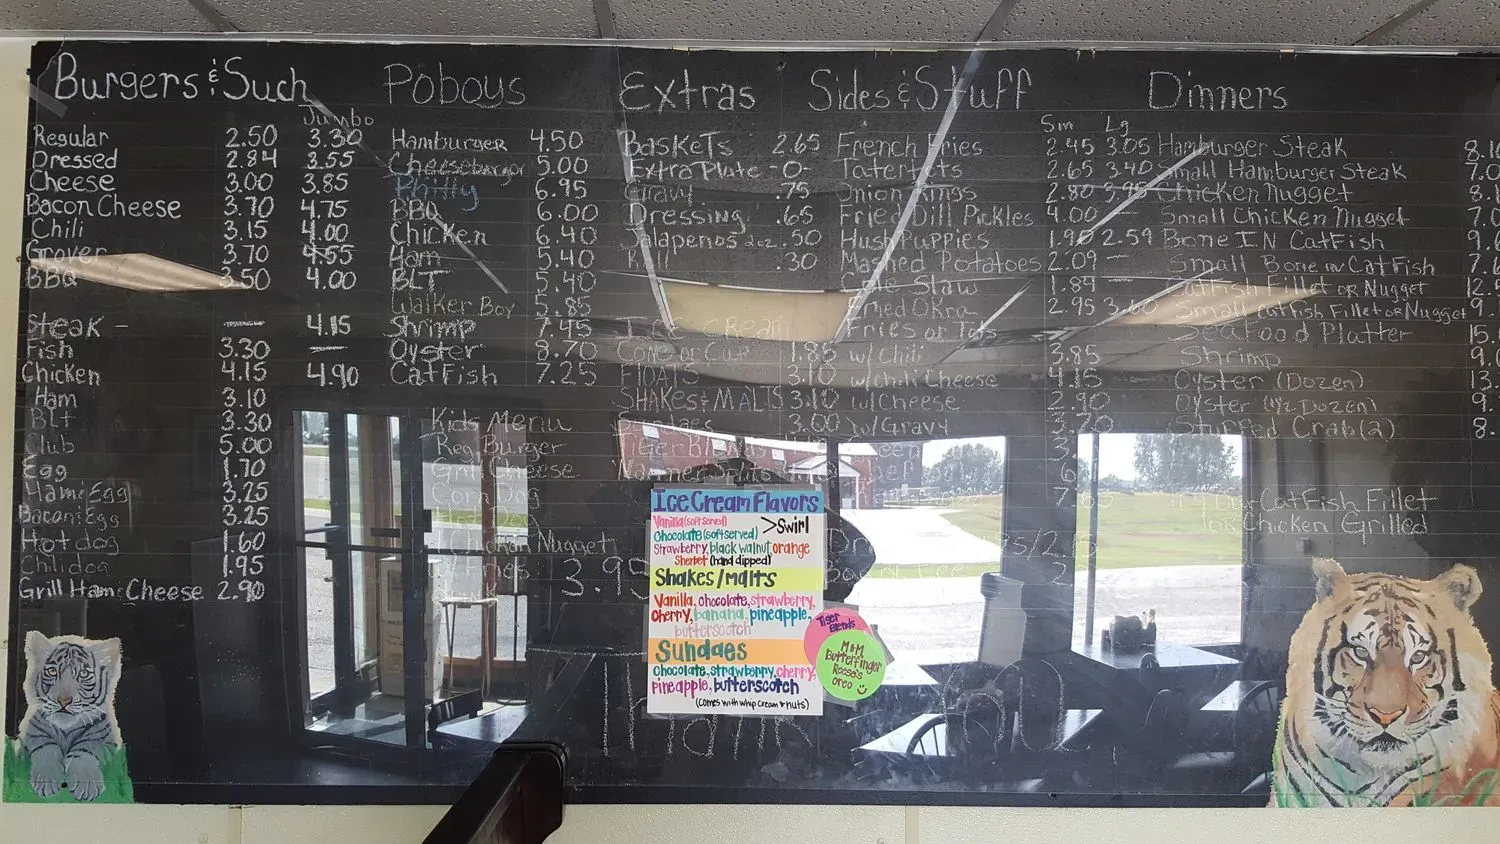 Burgers & Such
Jumbo
Regular 2.50 3.30
Dressed 2.84 3.55
Cheese 3.00 3.85
Bacon Cheese 3.70 4.75
Chili 3.15 4.00
Grover 3.70 4.55
BBQ 3.50 4.00
Steak - 4.15
Fish 3.30
Chicken 4.15 4.90
Ham 3.10
BLT 3.30
Club 5.00
Egg 1.70
Ham & Egg 3.25
Bacon & Egg 3.25
Hot dog 1.60
Chili dog 1.95
Grill Ham & Cheese 2.90
Poboys
Hamburger 4.50
Cheeseburger 5.00
Philly 6.95
BBQ 6.00
Chicken 6.40
Ham 5.40
BLT 5.40
Walker Boy 5.85
Shrimp 7.45
Oyster 8.70
CatFish 7.25
Kids Menu
Reg. Burger
Grill Cheese
Corn Dog
Hot Dog
Chicken Nugget
Fries 3.95
Extras
Baskets 2.65
Extra Plate -0-
Gravy .75
Dressing .65
Jalapenos 2oz .50
Roll .30
Ice Cream
Cone or Cup 1.85
Floats 3.10
Shakes & Malts 3.10
Sundaes 3.00
Tiger Blends
Sides & Stuff
Sm Lg
French Fries 2.45 3.05
Tatertots 2.65 3.40
Onion Rings 2.80 3.95
Fried Dill Pickles 4.00
Hush Puppies 1.95 2.59
Mashed Potatoes 2.09
Cole Slaw 1.89
Fried Okra 2.95 3.60
Fries or Tots
w/ Chili 3.85
w/ Chili Cheese 4.15
w/ Cheese 2.90
w/ Gravy
Dinners
Hamburger Steak
Small Hamburger Steak
Chicken Nugget
Small Chicken Nugget
Bone IN CatFish
Small Bone in CatFish
CatFish Fillet or Nugget
Small Catfish Fillet or Nugget
Seafood Platter
Shrimp
Oyster (Dozen)
Oyster (1/2 Dozen)
Stuffed Crab (2)
CatFish Fillet
Chicken Grilled
Ice Cream Flavors
Vanilla (soft served)
Chocolate (soft served) >Swirl
Strawberry, black walnut, orange
Sherbet (hand dipped)
Shakes/malts
Vanilla, chocolate, strawberry,
cherry, banana, pineapple,
butterscotch
Sundaes
chocolate, strawberry, cherry,
pineapple, butterscotch
(comes with whip cream & nuts)
Tiger
Blends
M&M
Butterfinger
Reese's
Oreo
Thank